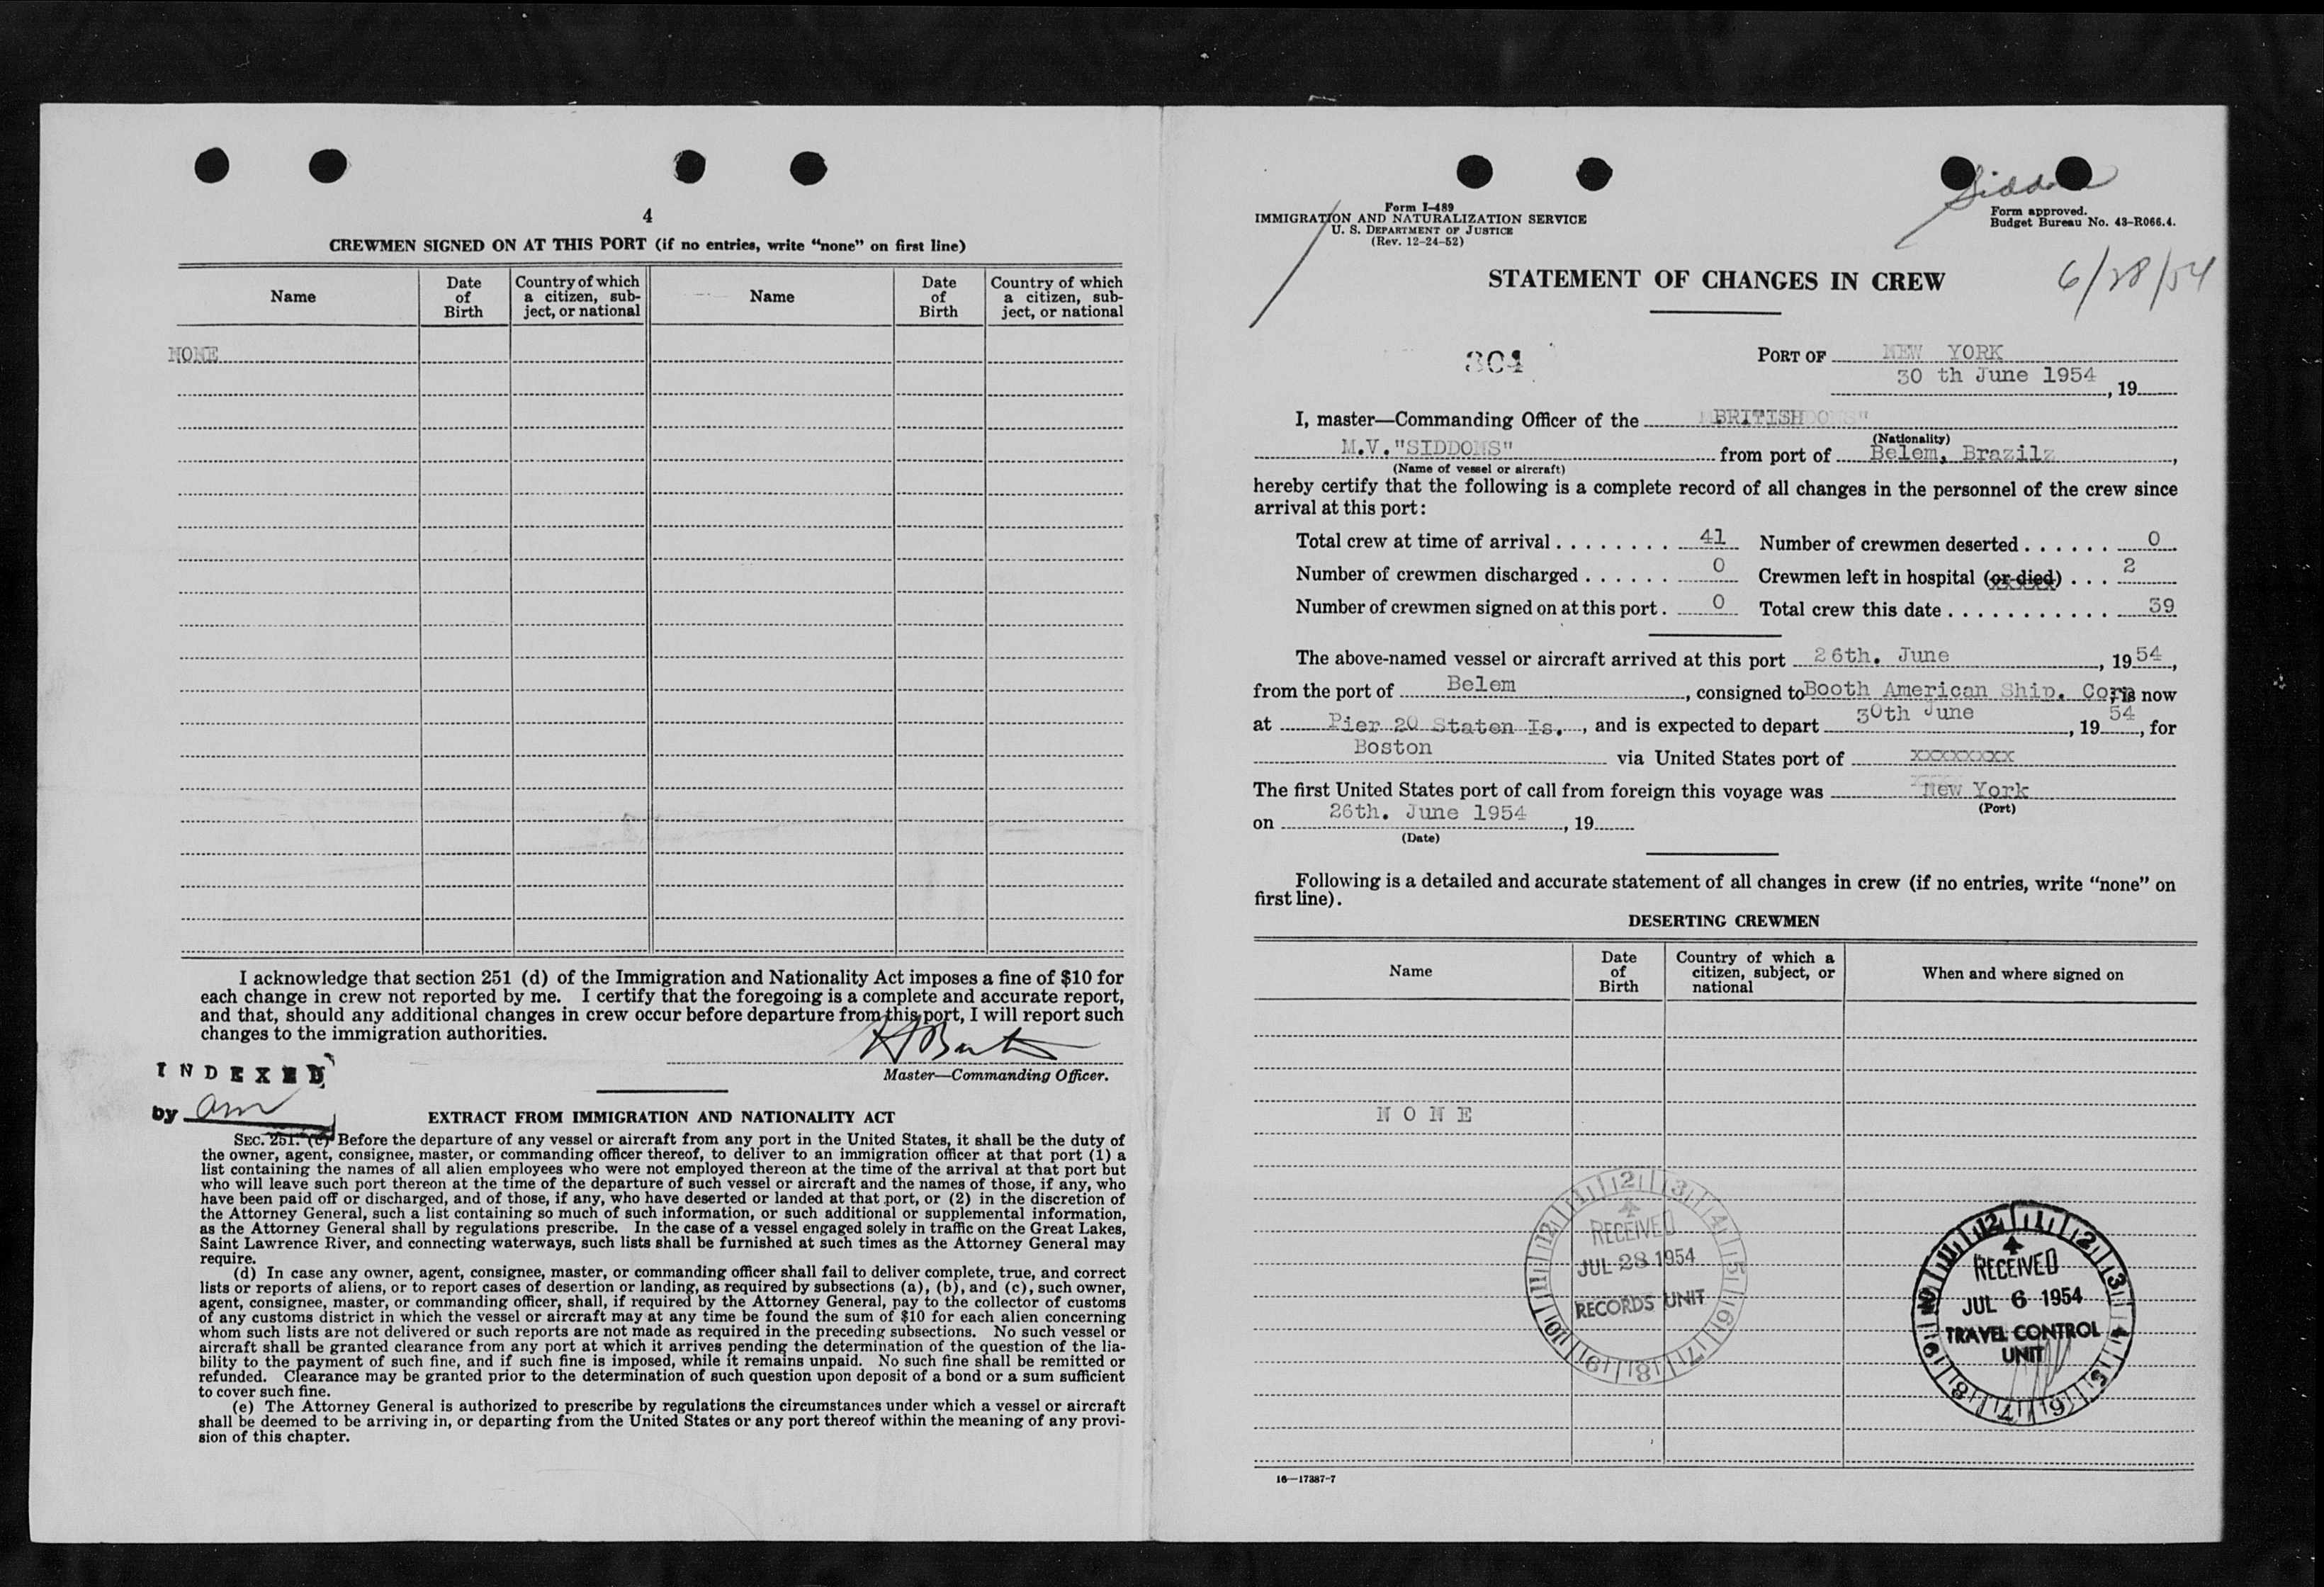 4
CREWMEN SIGNED ON AT THIS PORT (if no entries, write “none” on first line)
Name
Date of Birth
Country of which a citizen, subject, or national
Name
Date of Birth
Country of which a citizen, subject, or national
NONE
I acknowledge that section 251 (d) of the Immigration and Nationality Act imposes a fine of $10 for
each change in crew not reported by me. I certify that the foregoing is a complete and accurate report,
and that, should any additional changes in crew occur before departure from this port, I will report such
changes to the immigration authorities.
Master—Commanding Officer.
INDEXED
by
EXTRACT FROM IMMIGRATION AND NATIONALITY ACT
SEC. 251. (c) Before the departure of any vessel or aircraft from any port in the United States, it shall be the duty of
the owner, agent, consignee, master, or commanding officer thereof, to deliver to an immigration officer at that port (1) a
list containing the names of all alien employees who were not employed thereon at the time of the arrival at that port but
who will leave such port thereon at the time of the departure of such vessel or aircraft and the names of those, if any, who
have been paid off or discharged, and of those, if any, who have deserted or landed at that port, or (2) in the discretion of
the Attorney General, such a list containing so much of such information, or such additional or supplemental information,
as the Attorney General shall by regulations prescribe. In the case of a vessel engaged solely in traffic on the Great Lakes,
Saint Lawrence River, and connecting waterways, such lists shall be furnished at such times as the Attorney General may
require.
(d) In case any owner, agent, consignee, master, or commanding officer shall fail to deliver complete, true, and correct
lists or reports of aliens, or to report cases of desertion or landing, as required by subsections (a), (b), and (c), such owner,
agent, consignee, master, or commanding officer, shall, if required by the Attorney General, pay to the collector of customs
of any customs district in which the vessel or aircraft may at any time be found the sum of $10 for each alien concerning
whom such lists are not delivered or such reports are not made as required in the preceding subsections. No such vessel or
aircraft shall be granted clearance from any port at which it arrives pending the determination of the question of the lia-
bility to the payment of such fine, and if such fine is imposed, while it remains unpaid. No such fine shall be remitted or
refunded. Clearance may be granted prior to the determination of such question upon deposit of a bond or a sum sufficient
to cover such fine.
(e) The Attorney General is authorized to prescribe by regulations the circumstances under which a vessel or aircraft
shall be deemed to be arriving in, or departing from the United States or any port thereof within the meaning of any provi-
sion of this chapter.
Form I-489
IMMIGRATION AND NATURALIZATION SERVICE
U. S. DEPARTMENT OF JUSTICE
(Rev. 12-24-52)
Form approved.
Budget Bureau No. 43-R066.4.
STATEMENT OF CHANGES IN CREW
6/28/54
304
PORT OF NEW YORK
30 th June 1954, 19
I, master—Commanding Officer of the BRITISH
(Nationality)
M.V."SIDDONS" from port of Belem, Brazil,
(Name of vessel or aircraft)
hereby certify that the following is a complete record of all changes in the personnel of the crew since
arrival at this port:
Total crew at time of arrival . . . . . . . . 41 Number of crewmen deserted . . . . . . 0
Number of crewmen discharged . . . . . . 0 Crewmen left in hospital (or died) . . . 2
Number of crewmen signed on at this port . 0 Total crew this date . . . . . . . . . . . . 39
The above-named vessel or aircraft arrived at this port 26th. June, 1954,
from the port of Belem, consigned to Booth American Ship. Corp is now
at Pier 20 Staten Is., and is expected to depart 30th June, 1954, for
Boston via United States port of xxxxxxxx
The first United States port of call from foreign this voyage was New York
(Port)
on 26th. June 1954, 19
(Date)
Following is a detailed and accurate statement of all changes in crew (if no entries, write “none” on
first line).
DESERTING CREWMEN
Name
Date of Birth
Country of which a citizen, subject, or national
When and where signed on
N O N E
RECEIVED
JUL 28 1954
RECORDS UNIT
RECEIVED
JUL 6 1954
TRAVEL CONTROL
UNIT
16—17387-7